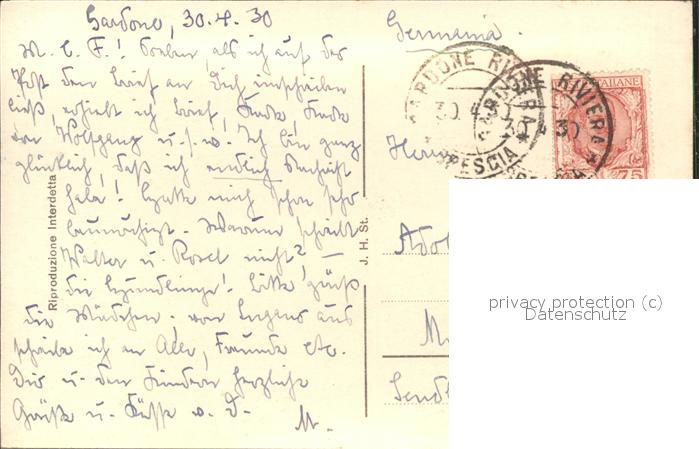 Gardone, 30.4.30
M. l. F.! Soeben, als ich auf der
Post den Brief an Dich einschreiben
ließ, erhielt ich Brief, Karte
von Wolfgang u.s.w. Ich bin ganz
glücklich, daß ich endlich Nachricht
habe! Hatte mich schon sehr
beunruhigt. Warum schreibt
Walter u. Rosel nicht? —
die Mädchen. von Lugano aus
schreibe ich an Alle, Freunde etc.
Dir u. den Kindern herzliche
Grüße u. Küsse v. d.
M.
Riproduzione Interdetta
J. H. St.
Germania.
GARDONE RIVIERA
BRESCIA
30
GARDONE RIVIERA
30
ITALIANE
75
Adol
M
Send
privacy protection (c)
Datenschutz